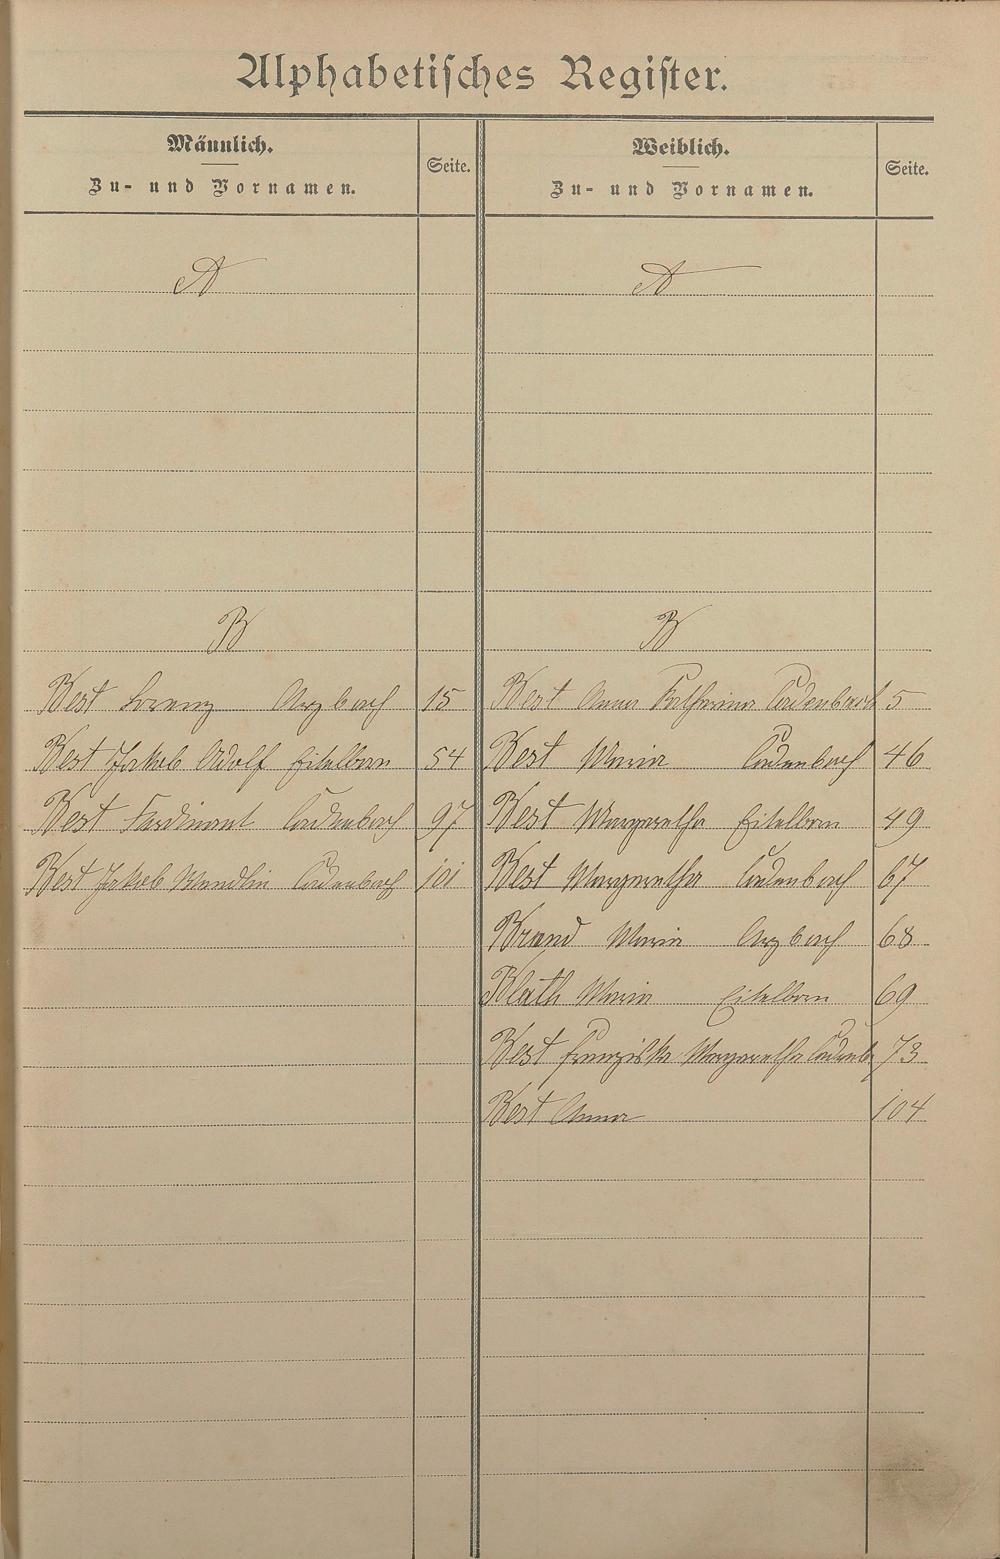 Alphabetisches Register.
Männlich.
Zu- und Vornamen.
Seite.
Weiblich.
Zu- und Vornamen.
Seite.
A
A
B
B
Best Lorenz Arzbach 15
Best Anna Katharina Cadenbach 5
Best Jakob Adolf Eitelborn 54
Best Maria Cadenbach 46
Best Ferdinant Cadenbach 97
Best Margaretha Eitelborn 49
Best Jakob Wendlin Cadenbach 101
Best Margaretha Cadenbach 67
Brand Maria Arzbach 68
Blath Maria Eitelborn 69
Best Franziska Margaretha Cadenb 73
Best Anna 104